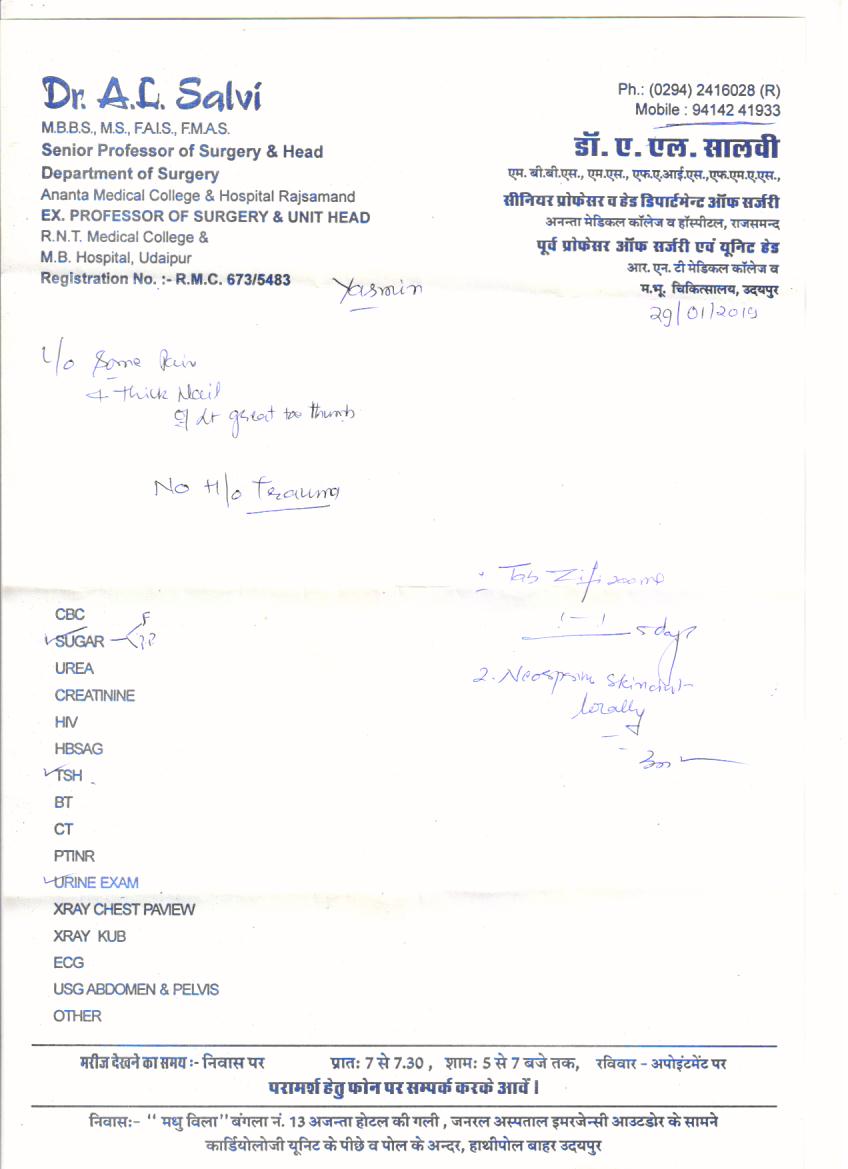 Dr. A.L. Salvi
M.B.B.S., M.S., F.A.I.S., F.M.A.S.
Senior Professor of Surgery & Head
Department of Surgery
Ananta Medical College & Hospital Rajsamand
EX. PROFESSOR OF SURGERY & UNIT HEAD
R.N.T. Medical College &
M.B. Hospital, Udaipur
Registration No. :- R.M.C. 673/5483
Ph.: (0294) 2416028 (R)
Mobile : 94142 41933
डॉ. ए. एल. सालवी
एम. बी.बी.एस., एम.एस., एफ.ए.आई.एस.,एफ.एम.ए.एस.,
सीनियर प्रोफेसर व हेड डिपार्टमेन्ट ऑफ सर्जरी
अनन्ता मेडिकल कॉलेज व हॉस्पीटल, राजसमन्द
पूर्व प्रोफेसर ऑफ सर्जरी एवं यूनिट हेड
आर. एन. टी मेडिकल कॉलेज व
म.भू. चिकित्सालय, उदयपुर
Yasmin
29/01/2019
Some Pain
+ Thick Nail
great toe thumb
No H/o Trauma
Tab Zifi 200mg
1-1
5 days
2. Neosporin Skin
locally
CBC
SUGAR F
PP
UREA
CREATININE
HIV
HBSAG
TSH
BT
CT
PTINR
URINE EXAM
XRAY CHEST PAVIEW
XRAY KUB
ECG
USG ABDOMEN & PELVIS
OTHER
मरीज देखने का समय :- निवास पर प्रातः 7 से 7.30 , शामः 5 से 7 बजे तक, रविवार - अपोइंटमेंट पर
परामर्श हेतु फोन पर सम्पर्क करके आवें ।
निवासः- “ मधु विला” बंगला नं. 13 अजन्ता होटल की गली , जनरल अस्पताल इमरजेन्सी आउटडोर के सामने
कार्डियोलोजी यूनिट के पीछे व पोल के अन्दर, हाथीपोल बाहर उदयपुर